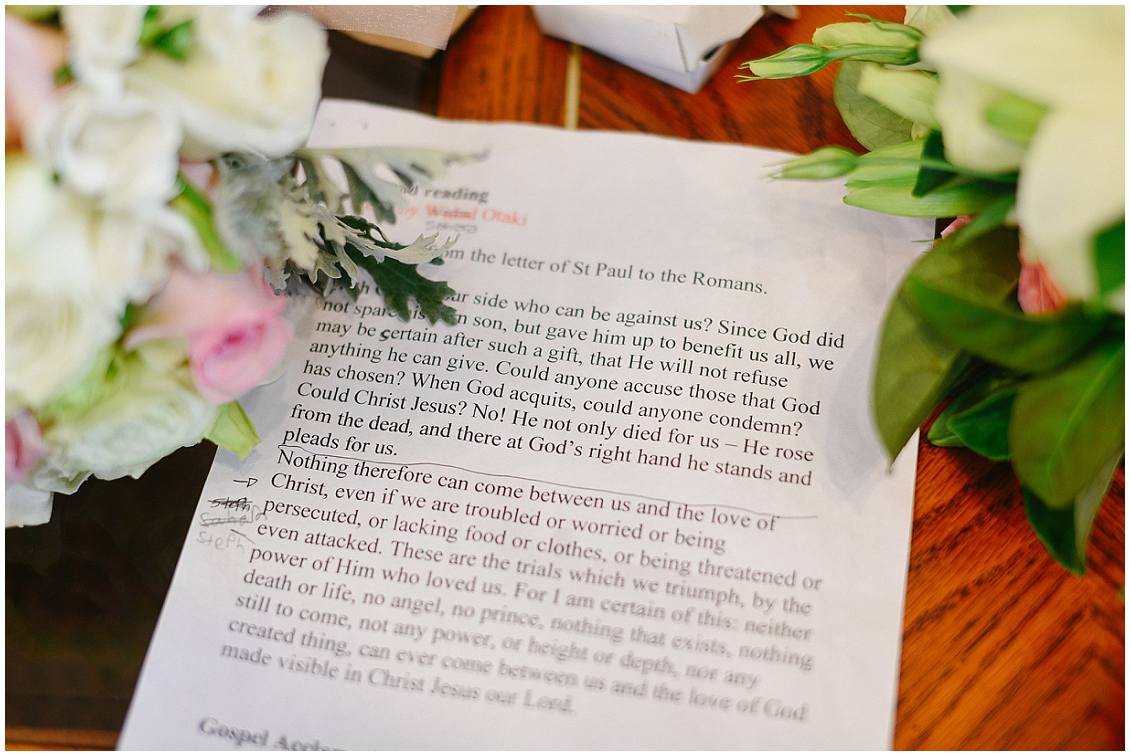 reading
Otaki
om the letter of St Paul to the Romans.
ur side who can be against us? Since God did
not spare is n son, but gave him up to benefit us all, we
may be certain after such a gift, that He will not refuse
anything he can give. Could anyone accuse those that God
has chosen? When God acquits, could anyone condemn?
Could Christ Jesus? No! He not only died for us – He rose
from the dead, and there at God's right hand he stands and
pleads for us.
Nothing therefore can come between us and the love of
Christ, even if we are troubled or worried or being
persecuted, or lacking food or clothes, or being threatened or
even attacked. These are the trials which we triumph, by the
power of Him who loved us. For I am certain of this: neither
death or life, no angel, no prince, nothing that exists, nothing
still to come, not any power, or height or depth, nor any
created thing, can ever come between us and the love of God
made visible in Christ Jesus our Lord.
steph
steph
Gospel